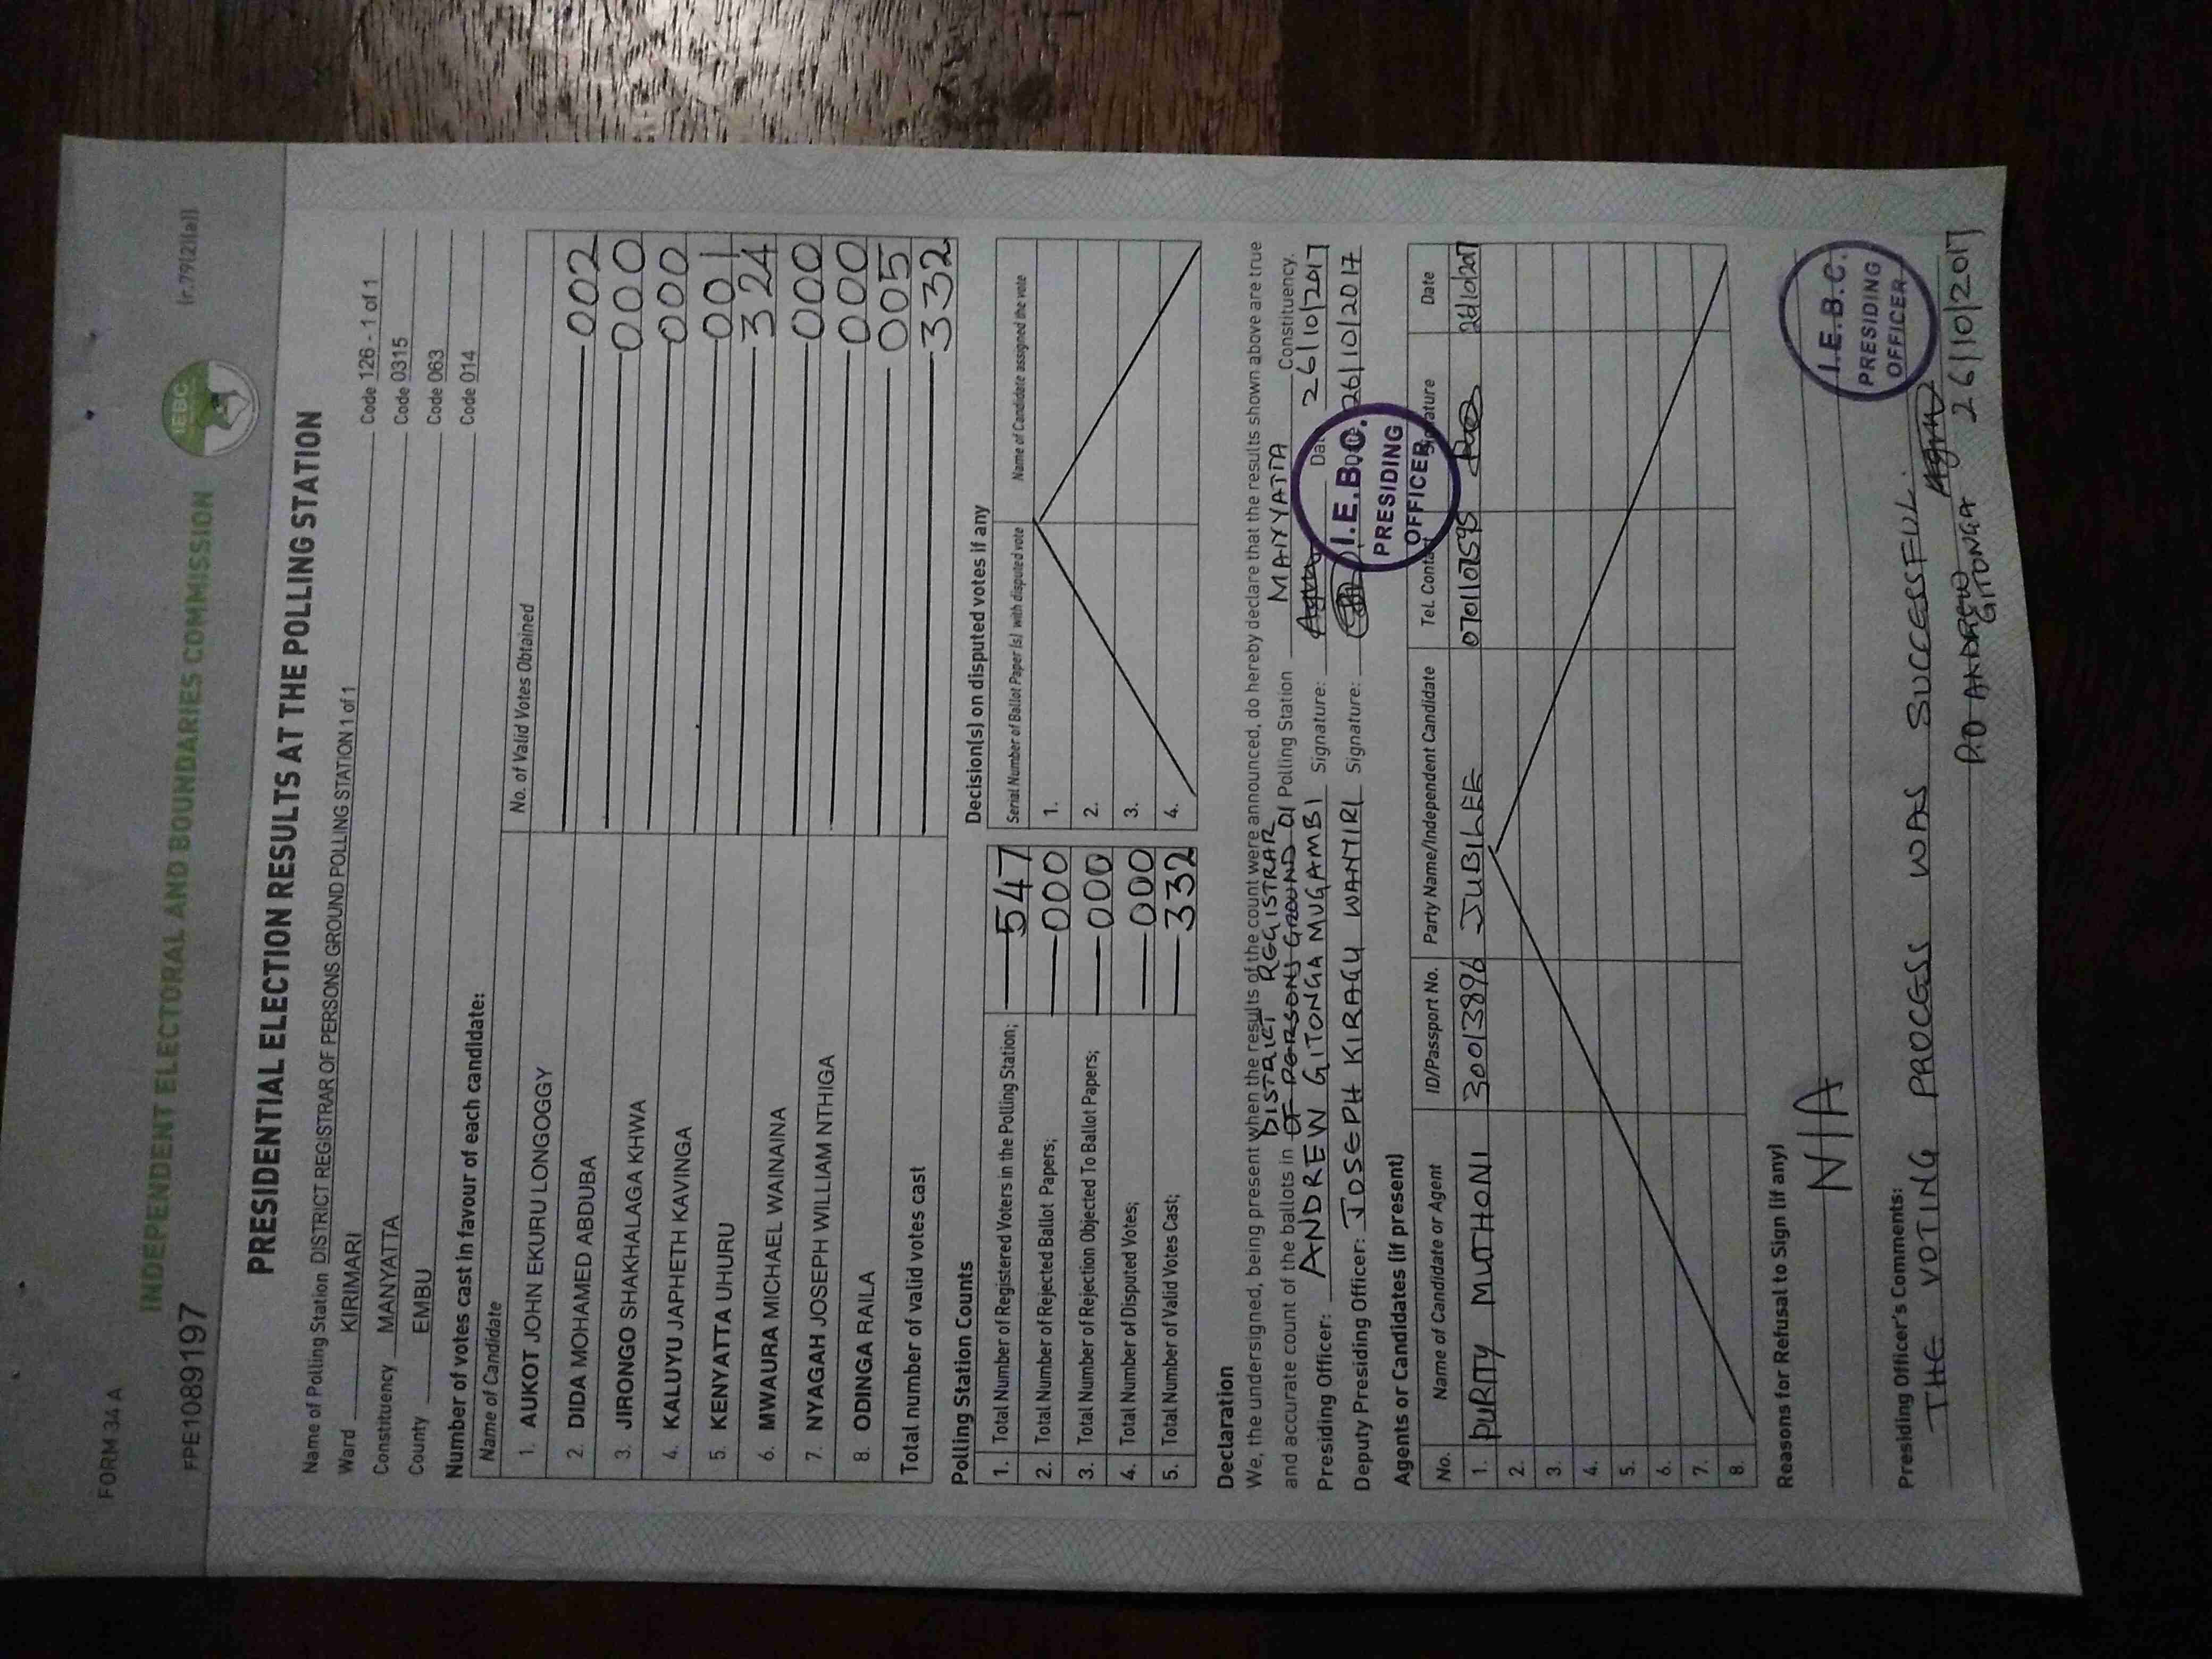 FORM 34 A
(r.79(2)(a))
INDEPENDENT ELECTORAL AND BOUNDARIES COMMISSION
IEBC
FPE1089197
PRESIDENTIAL ELECTION RESULTS AT THE POLLING STATION
Name of Polling Station DISTRICT REGISTRAR OF PERSONS GROUND POLLING STATION 1 of 1 Code 126 - 1 of 1
Ward KIRIMARI Code 0315
Constituency MANYATTA Code 063
County EMBU Code 014
Number of votes cast in favour of each candidate:
Name of Candidate No. of Valid Votes Obtained
1. AUKOT JOHN EKURU LONGOGGY 002
2. DIDA MOHAMED ABDUBA 000
3. JIRONGO SHAKHALAGA KHWA 000
4. KALUYU JAPHETH KAVINGA 001
5. KENYATTA UHURU 324
6. MWAURA MICHAEL WAINAINA 000
7. NYAGAH JOSEPH WILLIAM NTHIGA 000
8. ODINGA RAILA 005
Total number of valid votes cast 332
Polling Station Counts
1. Total Number of Registered Voters in the Polling Station; 547
2. Total Number of Rejected Ballot Papers; 000
3. Total Number of Rejection Objected To Ballot Papers; 000
4. Total Number of Disputed Votes; 000
5. Total Number of Valid Votes Cast; 332
Decision(s) on disputed votes if any
Serial Number of Ballot Paper (s) with disputed vote Name of Candidate assigned the vote
1.
2.
3.
4.
Declaration
We, the undersigned, being present when the results of the count were announced, do hereby declare that the results shown above are true
DISTRICT REGISTRAR
and accurate count of the ballots in OF PERSONS GROUND 01 Polling Station MANYATTA Constituency.
Presiding Officer: ANDREW GITONGA MUGAMBI Signature: Date 26/10/2017
Deputy Presiding Officer: JOSEPH KIRAGU WANTIRI Signature: 26/10/2017
I.E.B.C.
PRESIDING
OFFICER
Agents or Candidates (if present)
No. Name of Candidate or Agent ID/Passport No. Party Name/Independent Candidate Tel. Contact Signature Date
1. PURITY MUTHONI 30013896 JUBILEE 0701107595 26/10/2017
2.
3.
4.
5.
6.
7.
8.
Reasons for Refusal to Sign (if any)
N/A
Presiding Officer's Comments:
THE VOTING PROCESS WAS SUCCESSFUL.
P.O ANDREW GITONGA 26/10/2017
I.E.B.C.
PRESIDING
OFFICER